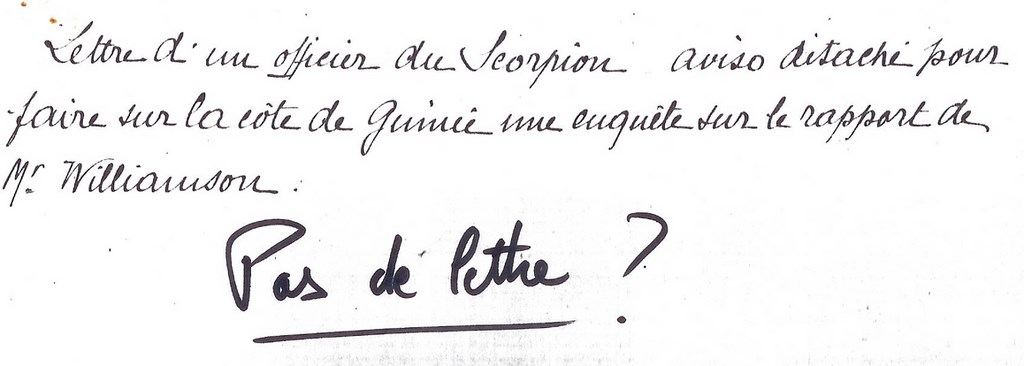 Lettre d'un officier du Scorpion aviso détaché pour
faire sur la côte de Guinée une enquête sur le rapport de
Mr Williamson.
Pas de lettre ?